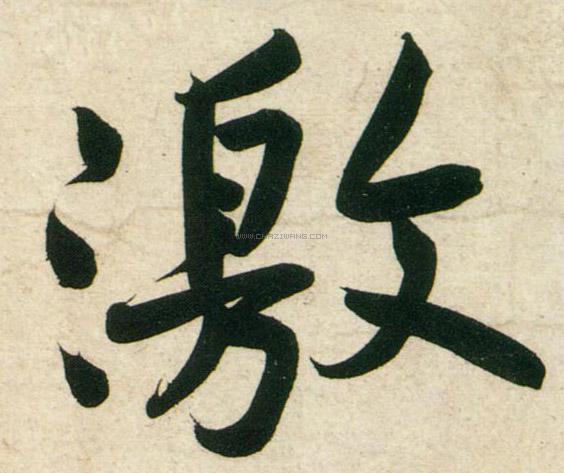 激
WWW.CHAZIWANG.COM